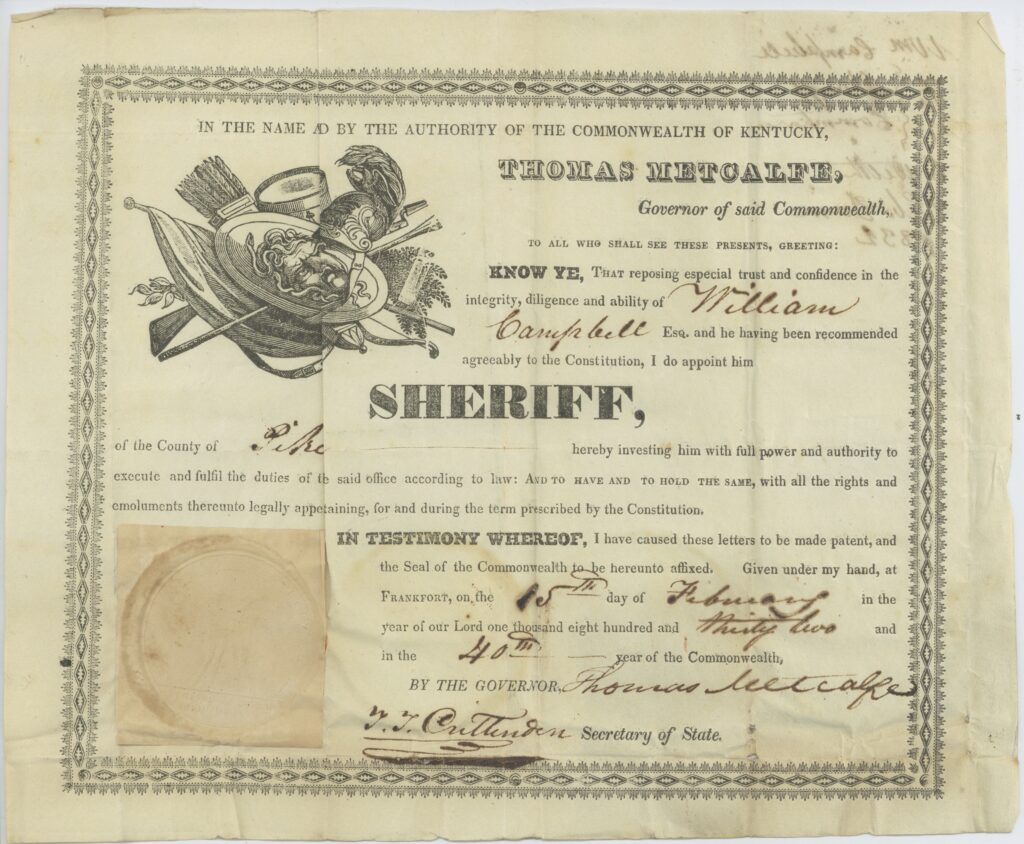 IN THE NAME AD BY THE AUTHORITY OF THE COMMONWEALTH OF KENTUCKY,
THOMAS METCALFE,
Governor of said Commonwealth,
TO ALL WHO SHALL SEE THESE PRESENTS, GREETING:
KNOW YE, THAT reposing especial trust and confidence in the
integrity, diligence and ability of William
Campbell Esq. and he having been recommended
agreeably to the Constitution, I do appoint him
SHERIFF,
of the County of Pike hereby investing him with full power and authority to
execute and fulfil the duties of te said office according to law: AND TO HAVE AND TO HOLD THE SAME, with all the rights and
emoluments thereunto legally appetaining, for and during the term prescribed by the Constitution.
IN TESTIMONY WHEREOF, I have caused these letters to be made patent, and
the Seal of the Commonwealth to be hereunto affixed. Given under my hand, at
FRANKFORT, on the 15TH day of February in the
year of our Lord one thousand eight hundred and thirty two and
in the 40TH year of the Commonwealth,
BY THE GOVERNOR, Thomas Metcalfe
T. T. Crittenden Secretary of State.